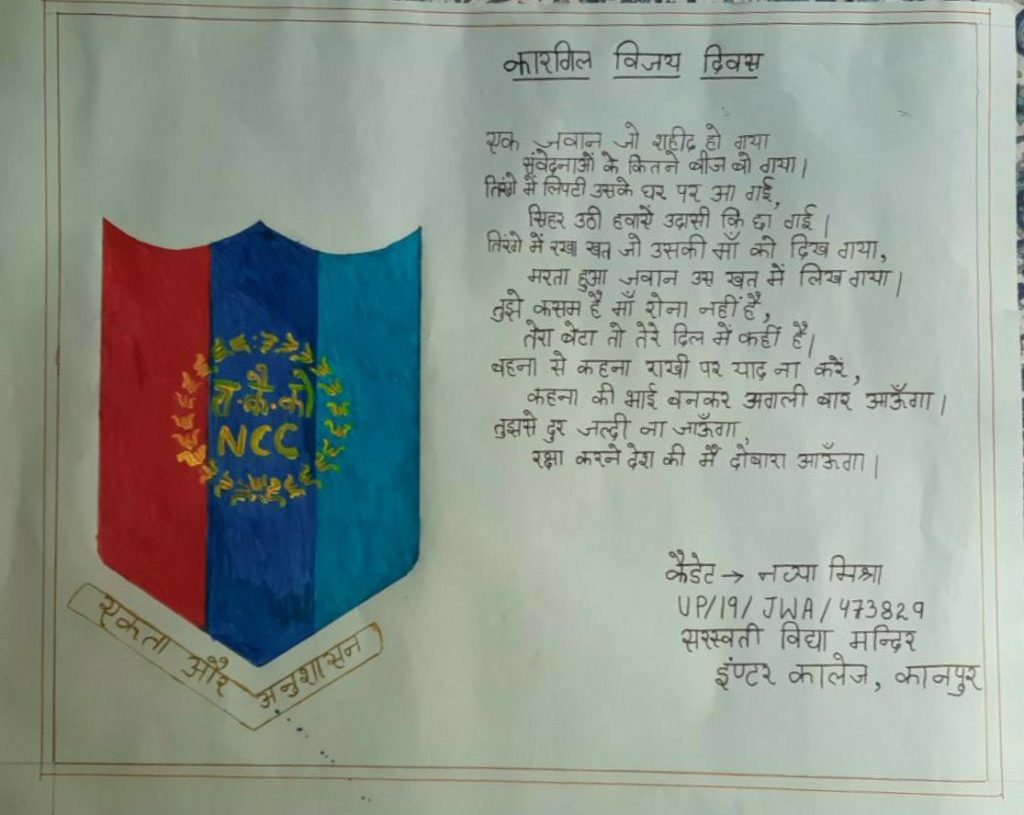 कारगिल विजय दिवस
एक जवान जो शहीद हो गया
संवेदनाओं के कितने बीज बो गया।
तिरंगे में लिपटी उसके घर पर आ गई,
सिहर उठी हवायें उदासी कि छा गई।
तिरंगे में रखा खत जो उसकी माँ को दिख गया,
मरता हुआ जवान उस खत में लिख गया।
तुझे कसम है माँ रोना नहीं है,
तेरा बेटा तो तेरे दिल में कहीं है।
बहना से कहना राखी पर याद ना करें,
कहना की भाई बनकर अगली बार आऊँगा।
तुझसे दुर जल्दी ना जाऊँगा,
रक्षा करने देश की मैं दोबारा आऊँगा।
रा.कै.को
NCC
एकता और अनुशासन
कैडेट → नव्या मिश्रा
UP/19/JWA/473829
सरस्वती विद्या मन्दिर
इंण्टर कालेज, कानपुर